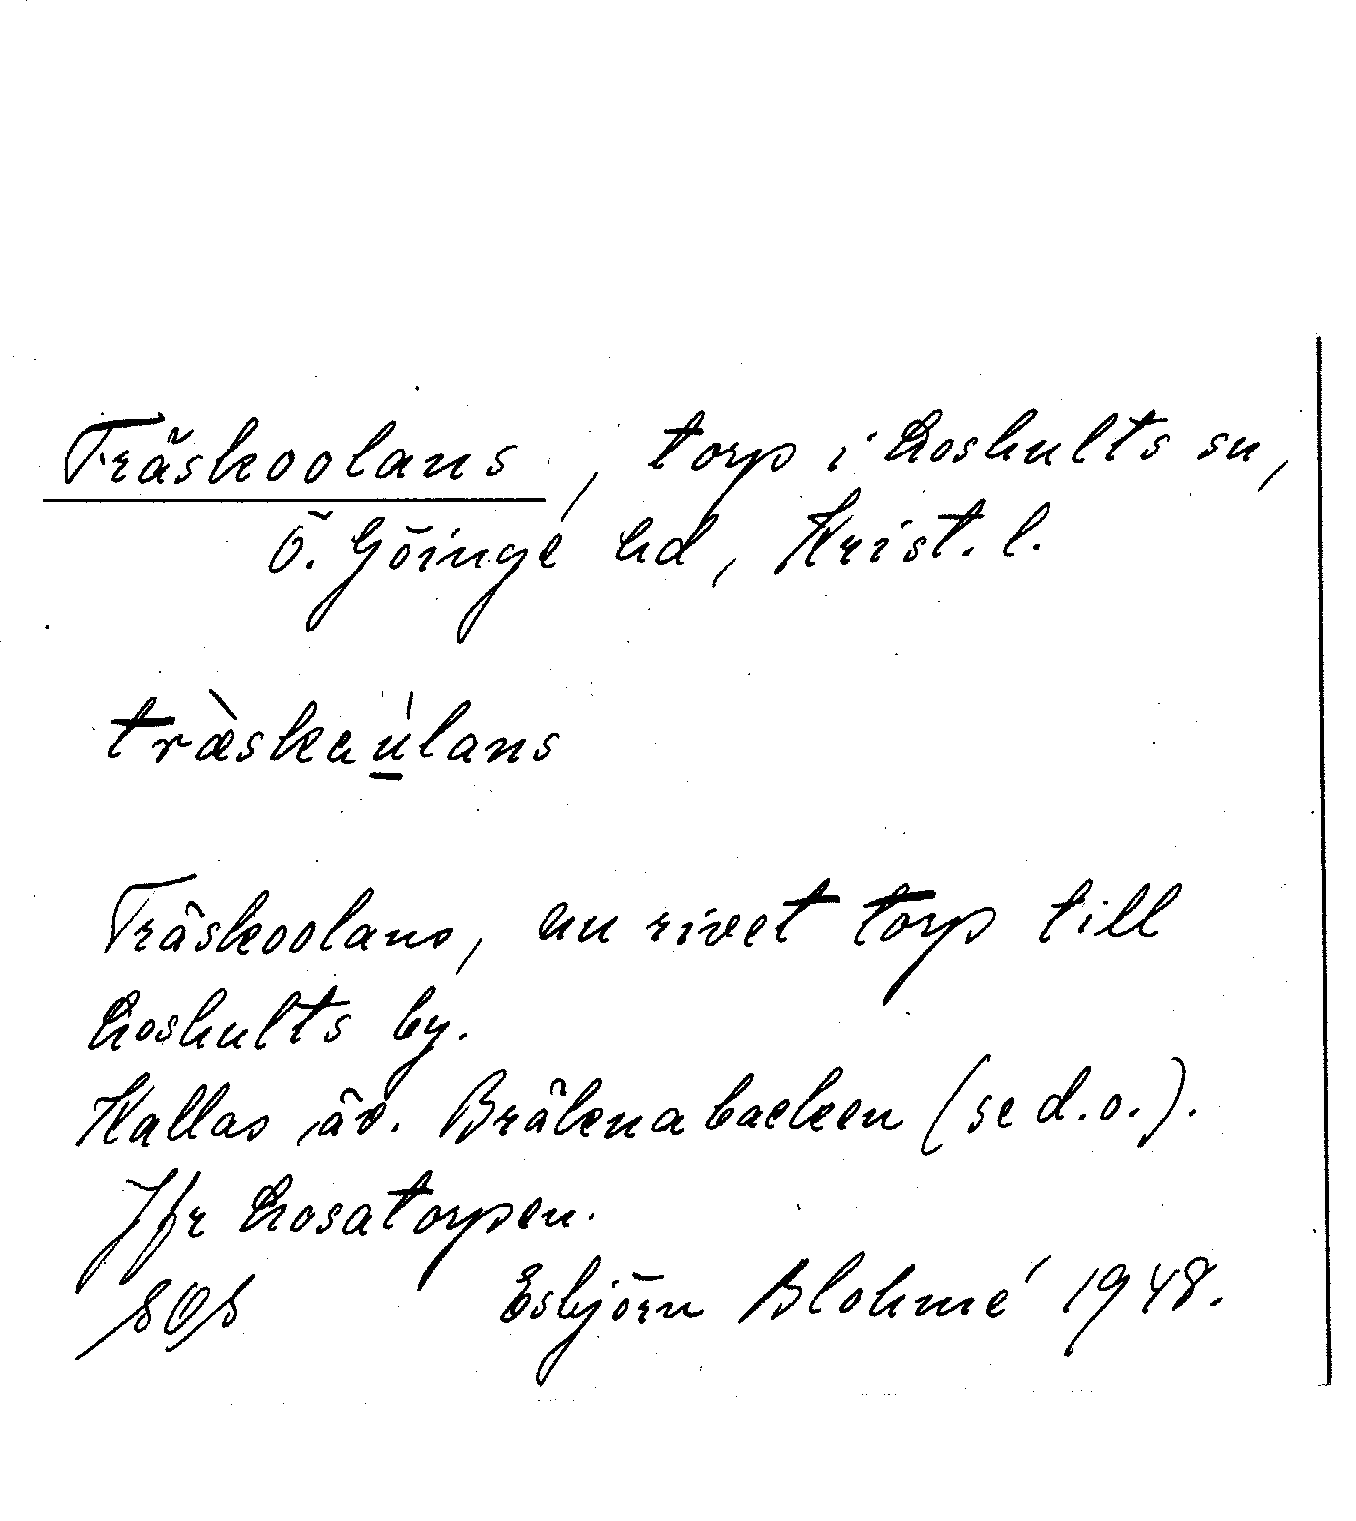 Träskoolans, torp i Loshults sn,
Ö. Göinge hd, Krist. l.
træ̀skaú̲lans
Träskoolans, nu rivet torp till
Loshults by.
Kallas äv. Bräknabacken (se d.o.).
Jfr Losatorpen.
Esbjörn Blohmé 1948.